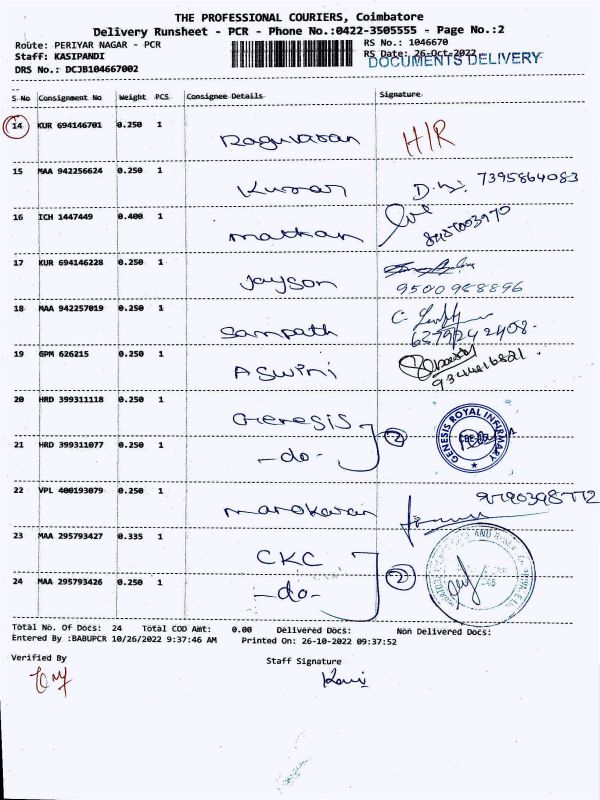 THE PROFESSIONAL COURIERS, Coimbatore
Delivery Runsheet - PCR - Phone No.:0422-3505555 - Page No.:2
Route: PERIYAR NAGAR - PCR
RS No.: 1046670
Staff: KASIPANDI
RS Date: 26-Oct-2022
DOCUMENTS DELIVERY
DRS No.: DCJB104667002
S No Consignment No Weight PCS Consignee Details Signature
14 KUR 694146701 0.250 1 Raguvaran H/R
15 MAA 942256624 0.250 1 Kumar 7395864083
16 ICH 1447449 0.400 1
17 KUR 694146228 0.250 1 Jayson 9500948896
18 MAA 942257019 0.250 1 Sampath 6379242408.
19 GPM 626215 0.250 1 Aswini
20 HRD 399311118 0.250 1 Genesis
21 HRD 399311077 0.250 1 -do- 2
GENESIS ROYAL INFIRMARY
22 VPL 400193079 0.250 1
23 MAA 295793427 0.335 1 CKC
24 MAA 295793426 0.250 1 -do- 2
Total No. Of Docs: 24 Total COD Amt: 0.00 Delivered Docs: Non Delivered Docs:
Entered By :BABUPCR 10/26/2022 9:37:46 AM Printed On: 26-10-2022 09:37:52
Verified By
Staff Signature